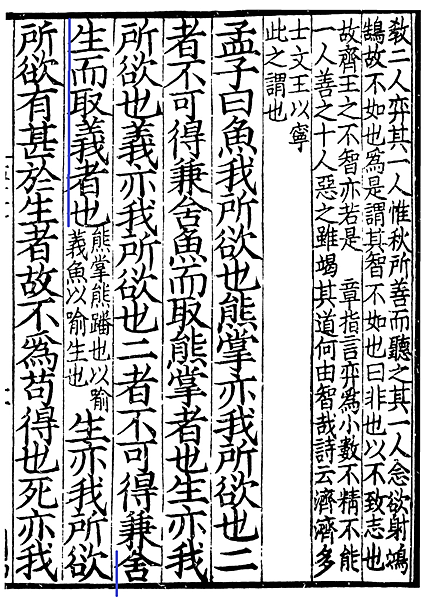 敎二人弈其一人惟秋所善而聽之其一人念欲射鴻
鵠故不如也為是謂其智不如也曰非也以不致志也
故齊王之不智亦若是 章指言弈為小數不精不能
一人善之十人惡之雖竭其道何由智哉詩云濟濟多
士文王以寧
此之謂也
孟子曰魚我所欲也熊掌亦我所欲也二
者不可得兼舍魚而取熊掌者也生亦我
所欲也義亦我所欲也二者不可得兼舍
生而取義者也
熊掌熊蹯也以喻
義魚以喻生也
生亦我所欲
所欲有甚於生者故不為苟得也死亦我